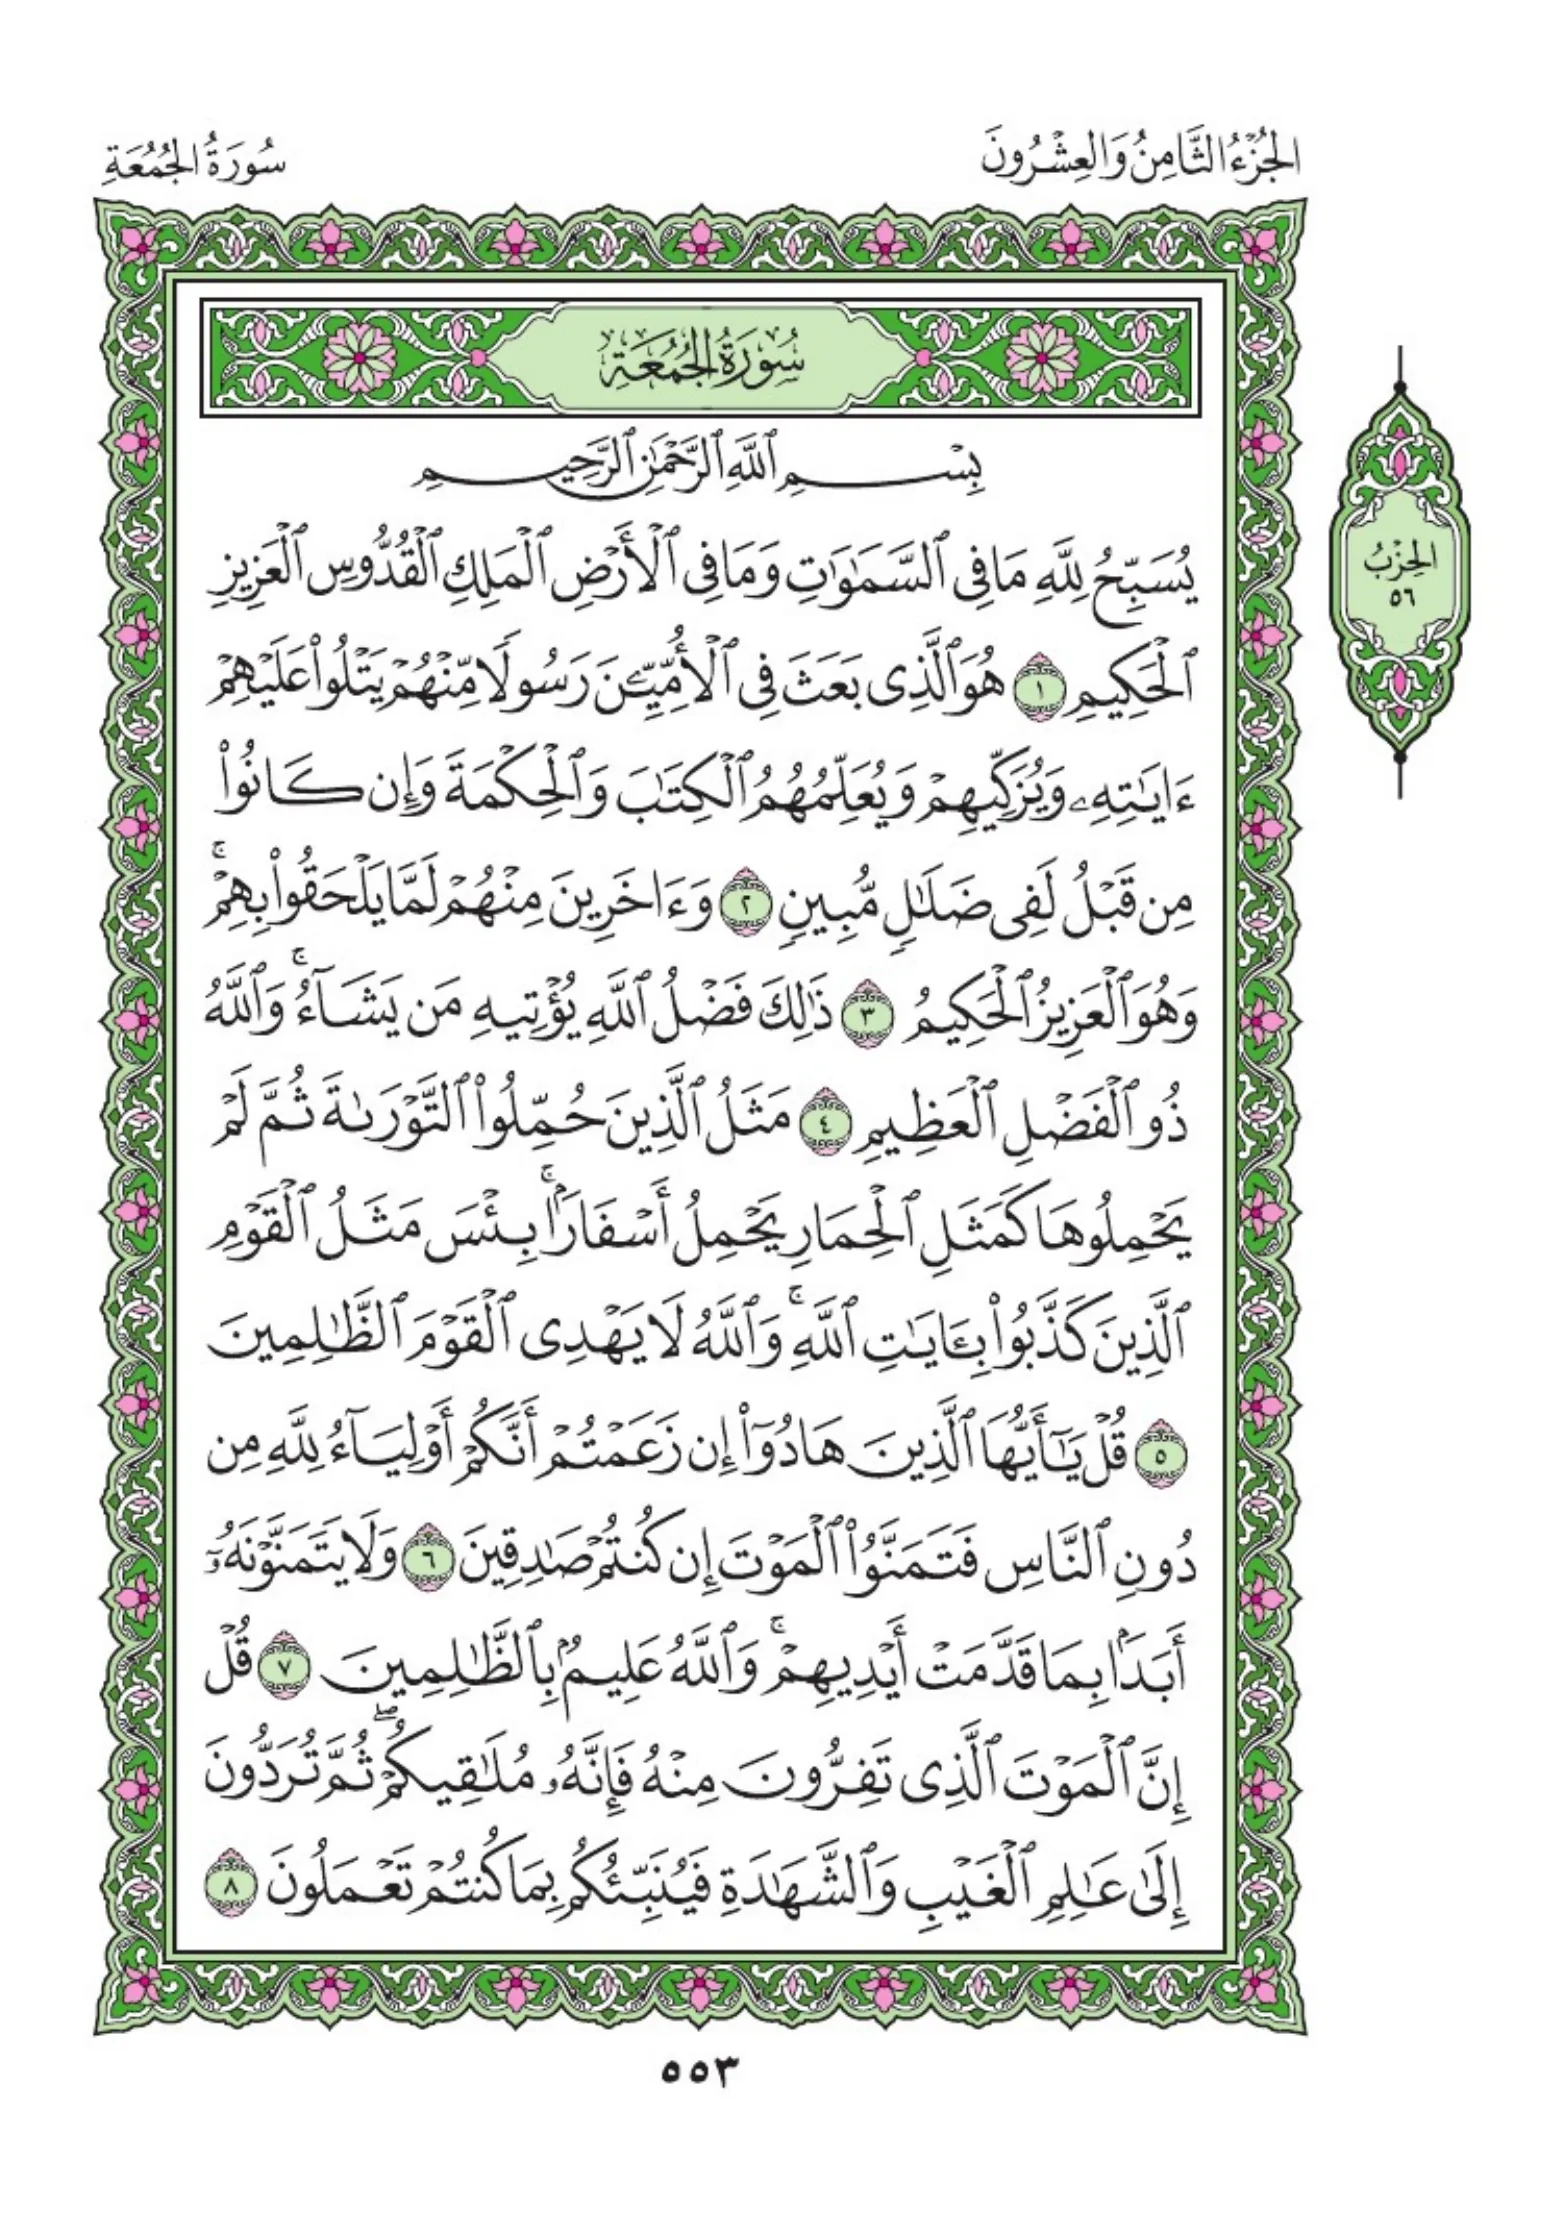 الجُزْءُ الثَّامِنُ وَالعِشْرُونَ
سُورَةُ الجُمُعَةِ
سُورَةُ الجُمُعَةِ
بِسْمِ ٱللَّهِ ٱلرَّحْمَٰنِ ٱلرَّحِيمِ
يُسَبِّحُ لِلَّهِ مَا فِى ٱلسَّمَٰوَٰتِ وَمَا فِى ٱلْأَرْضِ ٱلْمَلِكِ ٱلْقُدُّوسِ ٱلْعَزِيزِ
ٱلْحَكِيمِ ١ هُوَ ٱلَّذِى بَعَثَ فِى ٱلْأُمِّيِّۦنَ رَسُولًا مِّنْهُمْ يَتْلُوا۟ عَلَيْهِمْ
ءَايَٰتِهِۦ وَيُزَكِّيهِمْ وَيُعَلِّمُهُمُ ٱلْكِتَٰبَ وَٱلْحِكْمَةَ وَإِن كَانُوا۟
مِن قَبْلُ لَفِى ضَلَٰلٍ مُّبِينٍ ٢ وَءَاخَرِينَ مِنْهُمْ لَمَّا يَلْحَقُوا۟ بِهِمْ ۚ
وَهُوَ ٱلْعَزِيزُ ٱلْحَكِيمُ ٣ ذَٰلِكَ فَضْلُ ٱللَّهِ يُؤْتِيهِ مَن يَشَآءُ ۚ وَٱللَّهُ
ذُو ٱلْفَضْلِ ٱلْعَظِيمِ ٤ مَثَلُ ٱلَّذِينَ حُمِّلُوا۟ ٱلتَّوْرَىٰةَ ثُمَّ لَمْ
يَحْمِلُوهَا كَمَثَلِ ٱلْحِمَارِ يَحْمِلُ أَسْفَارًۢا ۚ بِئْسَ مَثَلُ ٱلْقَوْمِ
ٱلَّذِينَ كَذَّبُوا۟ بِـَٔايَٰتِ ٱللَّهِ ۚ وَٱللَّهُ لَا يَهْدِى ٱلْقَوْمَ ٱلظَّٰلِمِينَ
٥ قُلْ يَٰٓأَيُّهَا ٱلَّذِينَ هَادُوٓا۟ إِن زَعَمْتُمْ أَنَّكُمْ أَوْلِيَآءُ لِلَّهِ مِن
دُونِ ٱلنَّاسِ فَتَمَنَّوُا۟ ٱلْمَوْتَ إِن كُنتُمْ صَٰدِقِينَ ٦ وَلَا يَتَمَنَّوْنَهُۥٓ
أَبَدًۢا بِمَا قَدَّمَتْ أَيْدِيهِمْ ۚ وَٱللَّهُ عَلِيمٌۢ بِٱلظَّٰلِمِينَ ٧ قُلْ
إِنَّ ٱلْمَوْتَ ٱلَّذِى تَفِرُّونَ مِنْهُ فَإِنَّهُۥ مُلَٰقِيكُمْ ۖ ثُمَّ تُرَدُّونَ
إِلَىٰ عَٰلِمِ ٱلْغَيْبِ وَٱلشَّهَٰدَةِ فَيُنَبِّئُكُم بِمَا كُنتُمْ تَعْمَلُونَ ٨
الحِزْبُ
٥٦
٥٥٣